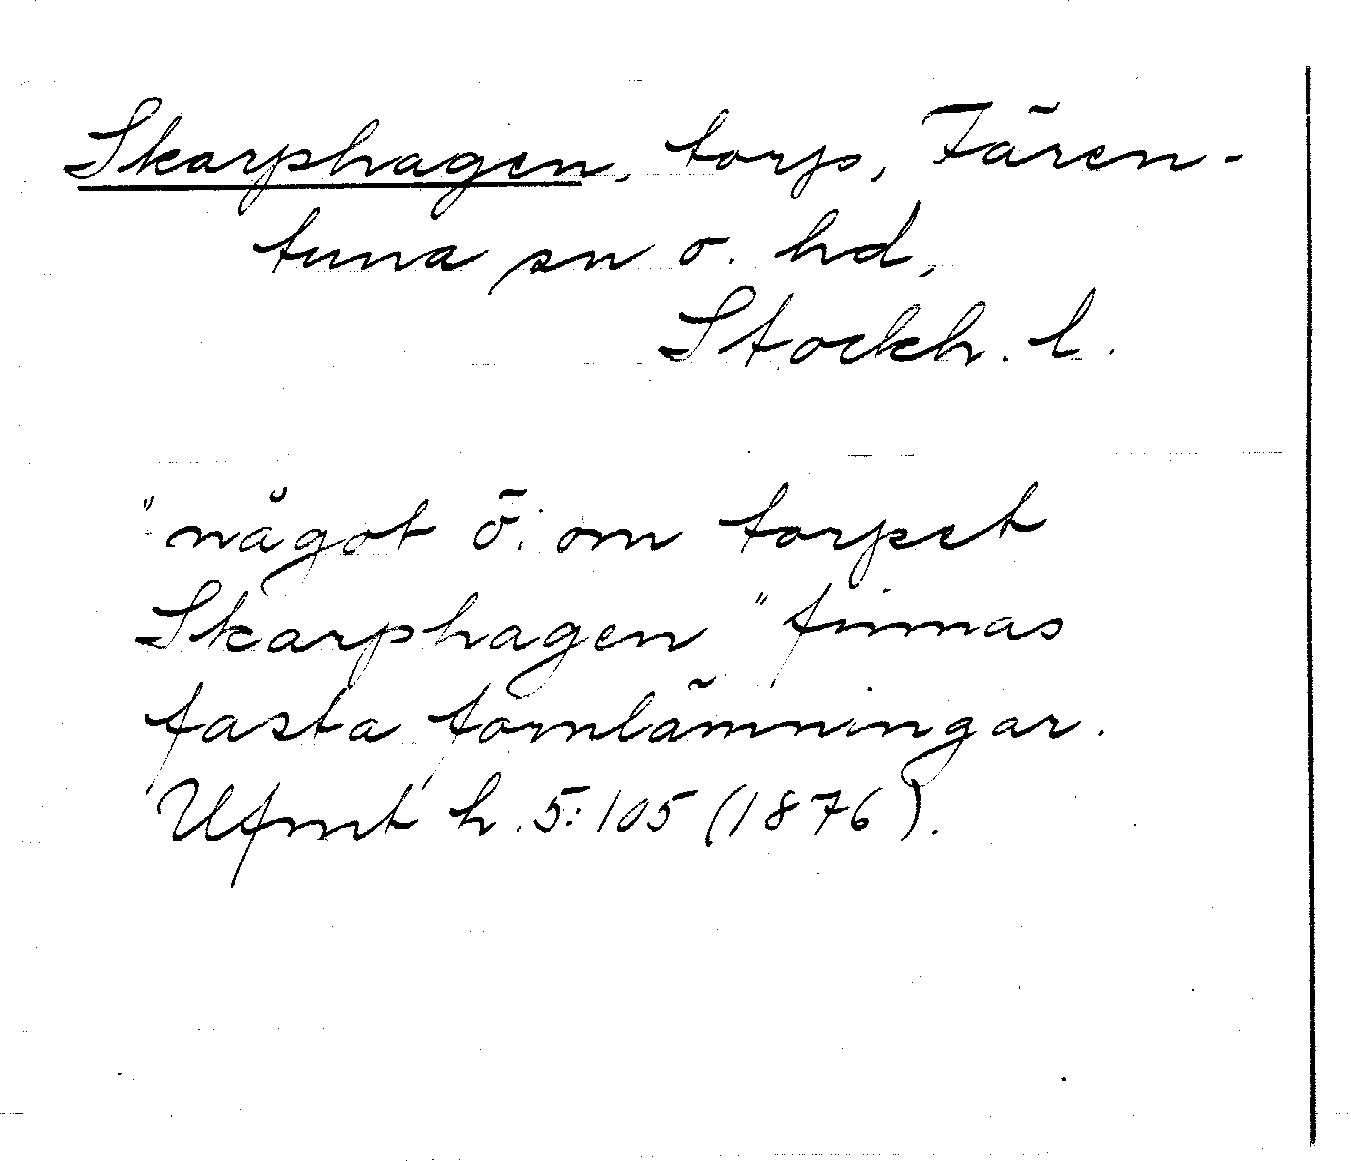 Skarphagen, torp, Fären-
tuna sn o. hd,
Stockh. l.
"något ö. om torpet
Skarphagen" finnas
fasta fornlämningar.
Ufmt h. 5:105 (1876).